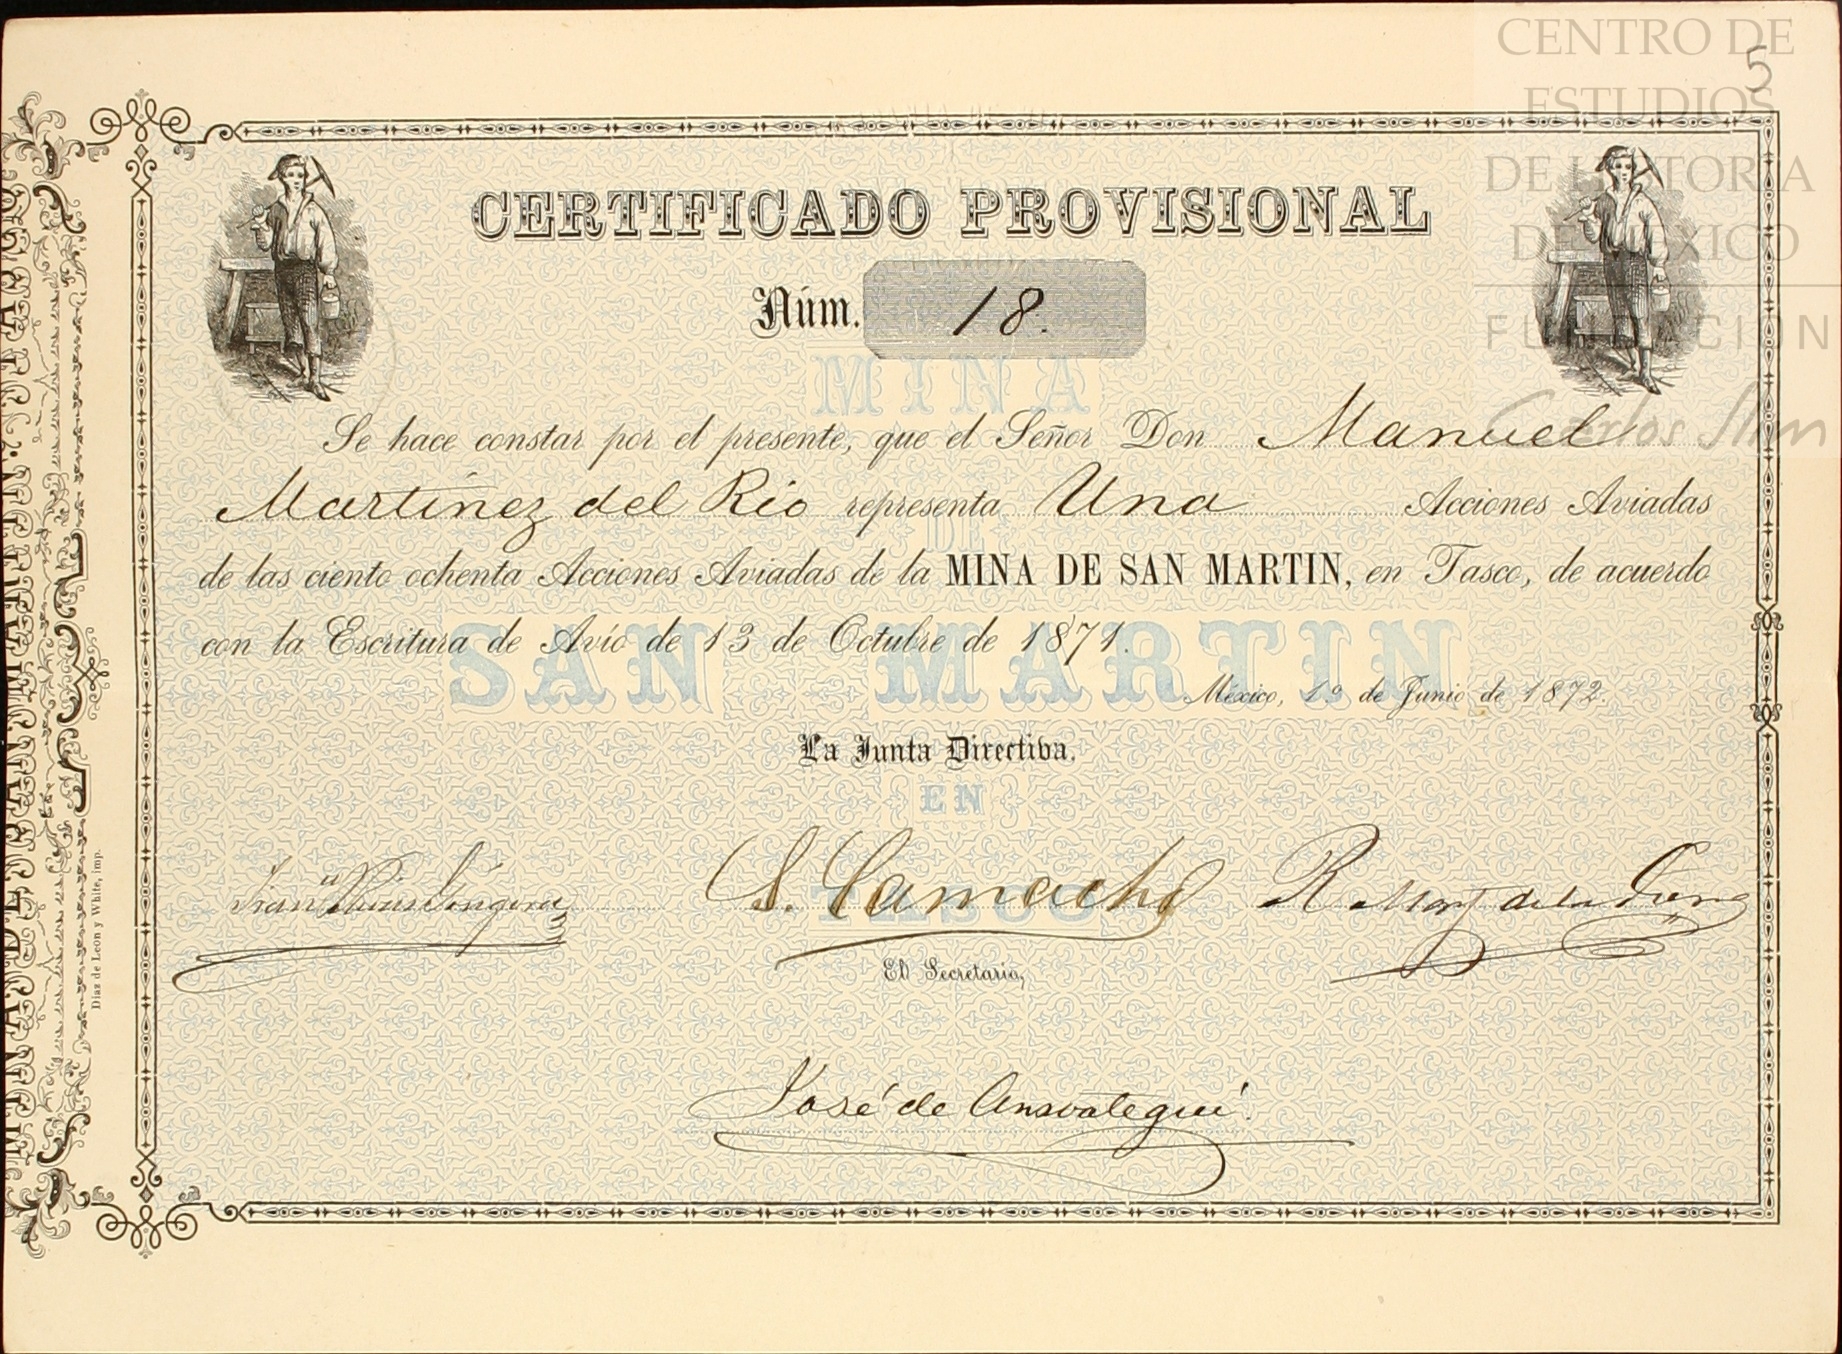 CENTRO DE
ESTUDIOS
DE HISTORIA
DE MÉXICO
FUNDACIÓN
Carlos Slim
5
CERTIFICADO PROVISIONAL
Núm. 18.
MINA
Se hace constar por el presente, que el Señor Don Manuel
Martínez del Río representa Una Acciones Aviadas
DE
de las ciento ochenta Acciones Aviadas de la MINA DE SAN MARTIN, en Tasco, de acuerdo
con la Escritura de Avío de 13 de Octubre de 1871.
SAN MARTIN
México, 1.º de Junio de 1872.
La Junta Directiva.
EN
TASCO
S. Camacho
El Secretario,
José de Ansoategui.
Diaz de Leon y White, imp.